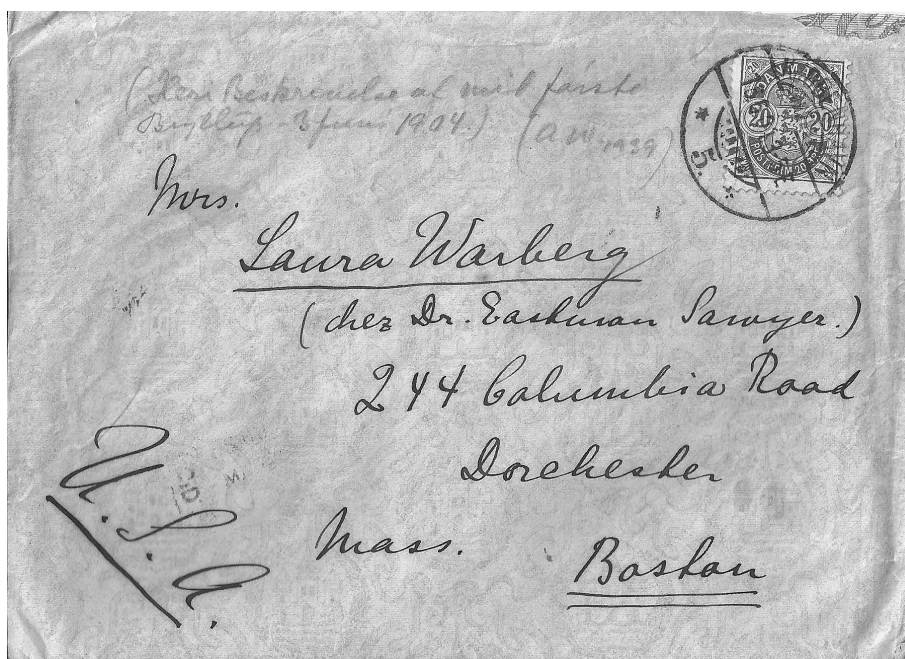 (Heri Beskrivelse af mit første
Bryllup - 3 Juni 1904.) (A.W. 1939)
DANMARK
20 20
POSTFRIM
5.
Mrs.
Laura Warberg
(chez Dr. Eastman Sawyer.)
244 Columbia Road
Dorchester
Mass.
Boston
U.S.A.